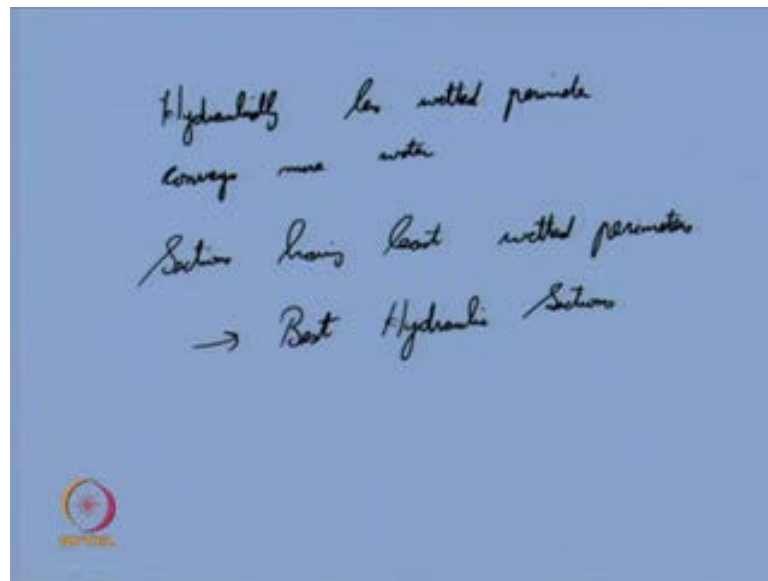 Hydraulically less wetted perimeter
conveys more water
Sections having least wetted perimeters
→ Best Hydraulic Sections
NPTEL